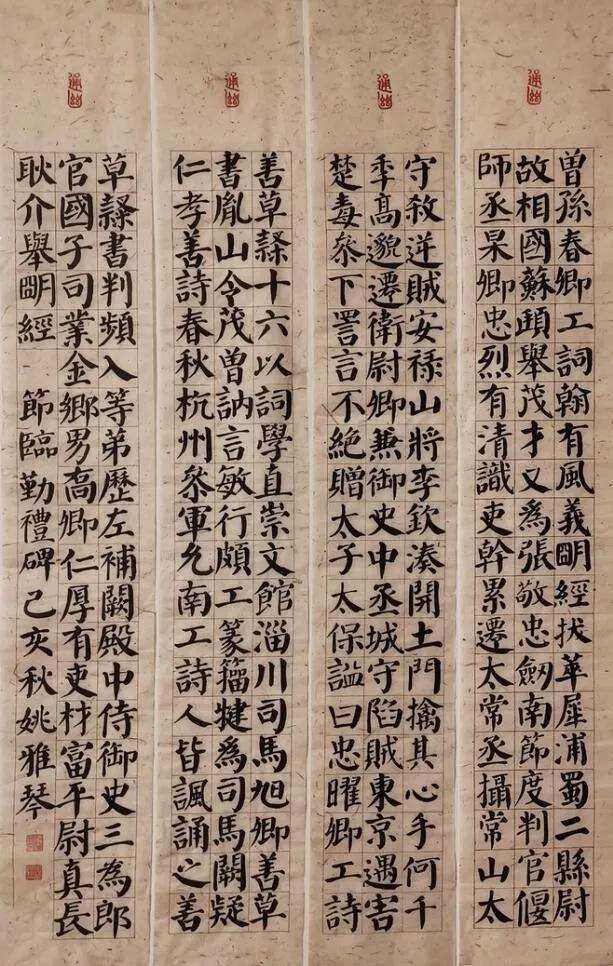 通幽
曾孫春卿工詞翰有風義明經拔萃犀浦蜀二縣尉
故相國蘇頲舉茂才又為張敬忠劍南節度判官偃
師丞杲卿忠烈有清識吏幹累遷太常丞攝常山太
通幽
守殺逆賊安祿山將李欽湊開土門擒其心手何千
秊高邈遷衛尉卿兼御史中丞城守陷賊東京遇害
楚毒叅下詈言不絕贈太子太保謚曰忠曜卿工詩
通幽
善草隸十六以詞學直崇文館淄川司馬旭卿善草
書胤山令茂曾訥言敏行頗工篆籀犍為司馬闕疑
仁孝善詩春秋杭州叅軍允南工詩人皆諷誦之善
通幽
草隸書判頻入等第歷左補闕殿中侍御史三為郎
官國子司業金鄉男喬卿仁厚有吏材富平尉真長
耿介舉明經 節臨勤禮碑己亥秋姚雅琴